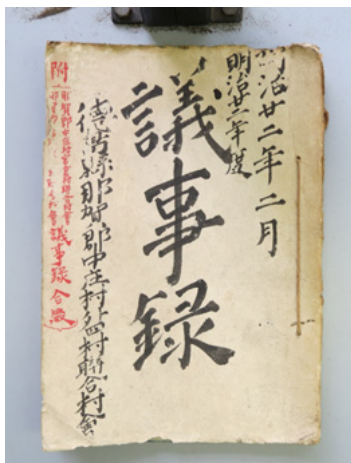 明治廿二年二月
明治廿二年度
議事録
徳嶋縣那賀郡中庄村外四村聯合村會
附
議事録合綴